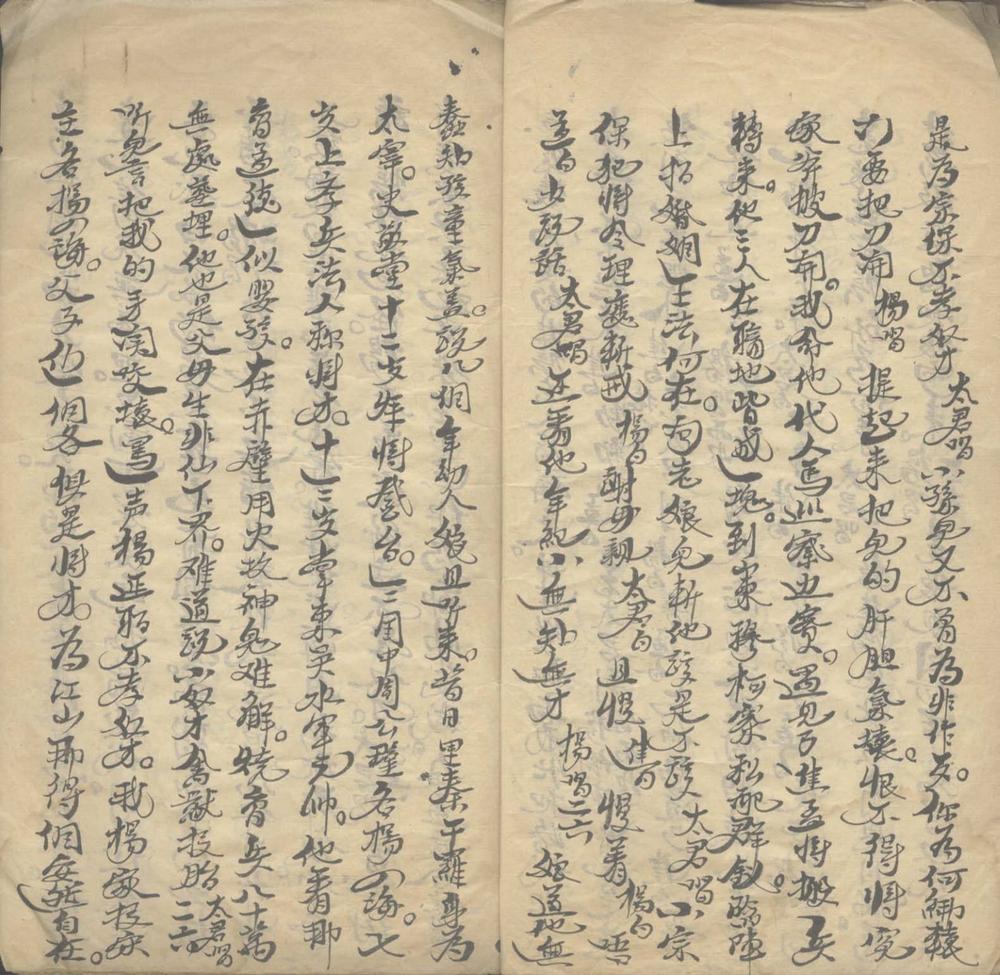 是為宗保不孝奴才太君唱小孫兒又不曾為非作歹。你為何綁轅
門要把刀開楊唱提起來把兒的肝胆氣壞。恨不得將冤
家奔披刀開。我命他代人馬巡察边寨。遇見了焦孟將搬兵
轉來。他三人在驕地皆成一塊。到寨穆柯寨私配群釵。臨陣
上招婚姻王法何在。问老娘兒斬他該是不該太君唱小宗
保犯將令理應斬戒楊白酧母親太君白且慢焦白慢着楊白吾
道白出訝話太君唱还着他年紀小無知無才楊唱二六娘道他無
蠢知孩童氣盖。說幾個年幼人娘且听來。昔日里秦干羅身為
太宰。史敬堂十二歲年將登台。三国中周公瑾名揚四海。七
歲上孝兵法人称將才。十三歲掌東吳水軍元帅。他看那
曹孟德似嬰孩。在赤壁用火攻神鬼难解。燒曹兵八十萬
無處塟埋。他也是父母生非仙下界。难道說小奴才禽獸投胎太君唱二六
听兒言把我的手闻咬壞。罵一声楊延昭不孝奴才。我楊家投宋
主名揚四海。父子們一個各俱是將才。為江山那得個安逸自在。